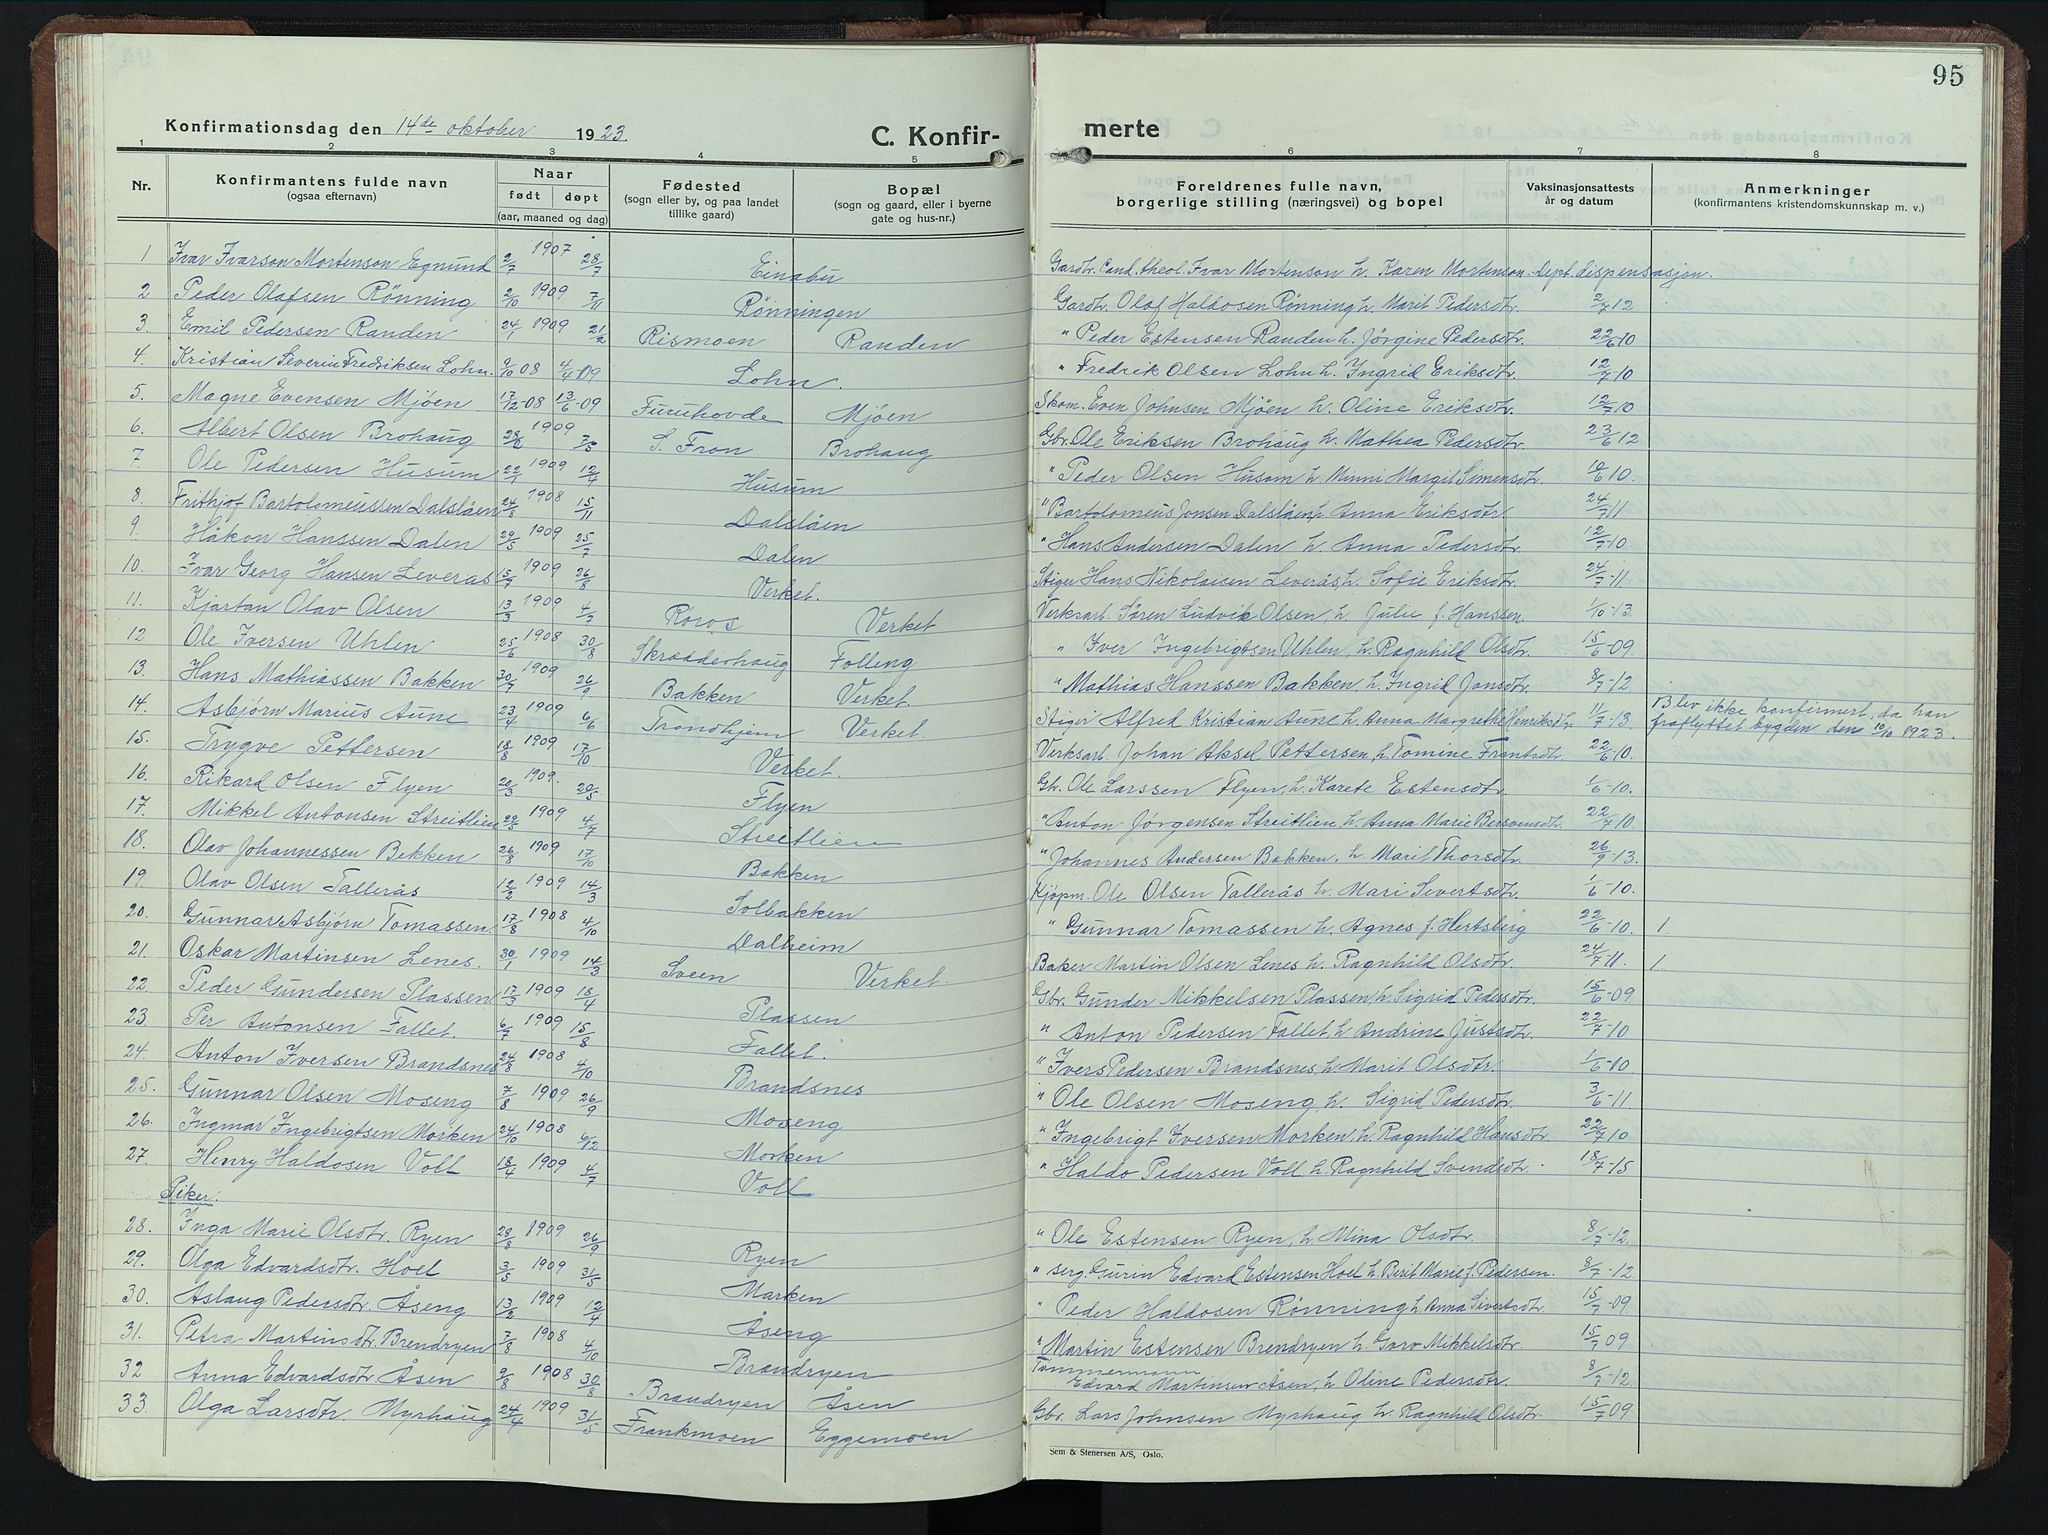 95
Konfirmationsdag den 14de oktober 1923.
C. Konfir-
merte
1 2 3 4 5 6 7 8
Nr. Konfirmantens fulde navn (ogsaa efternavn) Naar født døpt (aar, maaned og dag) Fødested (sogn eller by, og paa landet tillike gaard) Bopæl (sogn og gaard, eller i byerne gate og hus-nr.) Foreldrenes fulle navn, borgerlige stilling (næringsvei) og bopel Vaksinasjonsattests år og datum Anmerkninger (konfirmantens kristendomskunnskap m. v.)
1 Ivar Ivarson Mortenson Egnund 2/7 1907 28/7 Einabu Gardbr. Cand. theol. Ivar Mortenson h. Karen Mortenson. Dept. dispensasjon.
2 Peder Olafsen Rønning 2/10 1909 7/11 Rønningen Gardbr. Olaf Haldosen Rønning h. Marit Pedersdtr. 2/7 12
3. Emil Pedersen Randen 24/1 1909 21/2 Rismoen Randen " Peder Estensen Randen h. Jørgine Pedersdtr. 22/6 10
4. Kristian Severin Fredriksen Lohn. 9/10 08 4/4-09 Lohn. " Fredrik Olsen Lohn h. Ingrid Eriksdtr. 12/7-10
5. Magne Evensen Mjøen 17/12-08 13/6-09 Furuhovde Mjøen Skom. Even Johnsen Mjøen h. Oline Eriksdtr. 12/7 10
6. Albert Olsen Brohaug 28/2 1909 S. Fron Brohaug Gbr. Ole Eriksen Brohaug h. Mathea Pedersdtr. 23/6 12
7. Ole Pedersen Husum 22/1 1909 12/4 Husum " Peder Olsen Husom h. Minni Margit Simensdtr. /6 10.
8. Frithjof Bartolomeussen Dalslåen 24/8 1908 15/11 Dalslåen " Bartolomeus Jonsen Dalslåen h. Anna Eriksdtr. 24/7 11
9. Håkon Hanssen Dalen 29/5 1909 25/7 Dalen " Hans Andersen Dalen h. Anna Pedersdtr. 12/7-10.
10. Ivar Georg Hansen Leverås 15/7 1909 26/8 Verket. Stiger Hans Nikolaisen Leverås h. Sofie Eriksdtr. 24/7-11
11. Kjartan Olav Olsen 13/3 1909 Røros Verket Verksarb. Søren Ludvik Olsen, h. Julie f. Hanssen. 1/10-13
12 Ole Iversen Uhlen 25/6 1908 30/8 Skradderhaug Folling " Iver Ingebrigtsen Uhlen, h. Ragnhild Olsdtr. 15/6-09
13. Hans Mathiassen Bakken 30/7 1909 26/9 Bakken Verket. " Mathias Hanssen Bakken, h. Ingrid Jonsdtr. 8/7-12
14. Asbjørn Marius Aune 23/4 1909 6/6 Trondhjem Verket. Stiger Alfred Kristian Aune h. Anna Margrethe Henriksdtr. 11/7-13 Blev ikke konfirmert, da han
fraflyttet bygden den 10/10 1923.
15. Trygve Pettersen 18/8 1909 17/10 Verket. Verksarb. Johan Aksel Pettersen, h. Tomine Frantsdtr. 22/6-10.
16. Rikard Olsen Flyen 20/3 1909. 20/5 Flyen Gbr. Ole Larssen Flyen, h. Karete Estensdtr. 1/6-10.
17. Mikkel Antonsen Streitlien 29/5 1909 4/7 Streitlien " Anton Jørgensen Streitlien, h. Anna Marie Bersvensdtr. 22/7 10.
18. Olav Johannessen Bekken 26/8 1909 17/10 Bakken " Johannes Andersen Bakken, h. Marit Thorsdtr. 26/9-13.
19. Olav Olsen Tallerås 12/2 1909 14/3 Solbakken Kjøpm. Ole Olsen Tallerås h. Mari Sivertsdtr. 1/6-10.
20. Gunnar Asbjørn Tomassen. 17/8 1908 4/10 Dalheim " Gunnar Tomassen h. Agnes f. Hertsberg 22/6-10. 1.
21. Oskar Martinsen Lenes. 30/1 1909 14/3 Sveen Verket. Baker Martin Olsen Lenes h. Ragnhild Olsdtr. 24/7 11. 1.
22. Peder Gundersen Plassen 17/3 1909 18/4 Plassen Gbr. Gunder Mikkelsen Plassen h. Sigrid Pedersdtr. 15/6-09
23. Per Antonsen Fallet. 6/7 1909 15/8 Fallet. " Anton Pedersen Fallet h. Andrine Justsdtr. 22/7-10
24. Anton Iversen Brandsnes 24/8 1908 4/10 Brandsnes " Ivers Pedersen Brandsnes, h. Marit Olsdtr. 1/6-10
25. Gunnar Olsen Moseng 7/8 1909 26/9 Moseng " Ole Olsen Moseng, h. Sigrid Pedersdtr. 3/6-11
26. Ingmar Ingebrigtsen Morken 24/10 1908 6/12 Morken " Ingebrigt Iversen Morken, h. Ragnhild Hansdtr. 22/7 10
27. Henry Haldosen Voll 18/4 1909 4/7 Voll " Haldo Pedersen Voll h. Ragnhild Svendsdtr. 18/7-15
Piker:
28. Inga Marie Olsdtr. Ryen 28/8 1909 26/9 Ryen " Ole Estensen Ryen, h. Mina Olsdtr. 8/7-12.
29. Olga Edvardsdtr. Hoel 3/5 1909 31/5 Marken " serg. Gurin Edvard Estensen Hoel h. Birit Marie f. Pedersen. 8/7-12
30. Aslaug Pedersdtr. Åseng 13/2 1909 12/4 Åseng " Peder Haldosen Rønning h. Anna Sivertsdtr. 15/7-09
31. Petra Martinsdtr. Brendryen 7/8 1908 4/10 Brandryen " Martin Estensen Brendryen h. Goro Mikkelsdtr. 15/7 09
32 Anna Edvardsdtr. Åsen 9/8 1908 30/8 Brandryen Åsen Tømmermann Edvard Martinsen Åsen, h. Oline Pedersdtr. 8/7-12.
33. Olga Larsdtr. Myrhaug 24/4 1909 31/5 Frankmoen Eggemoen Gbr. Lars Johnsen Myrhaug h. Ragnhild Olsdtr. 15/7 09
Sem & Stenersen A/S, Oslo.